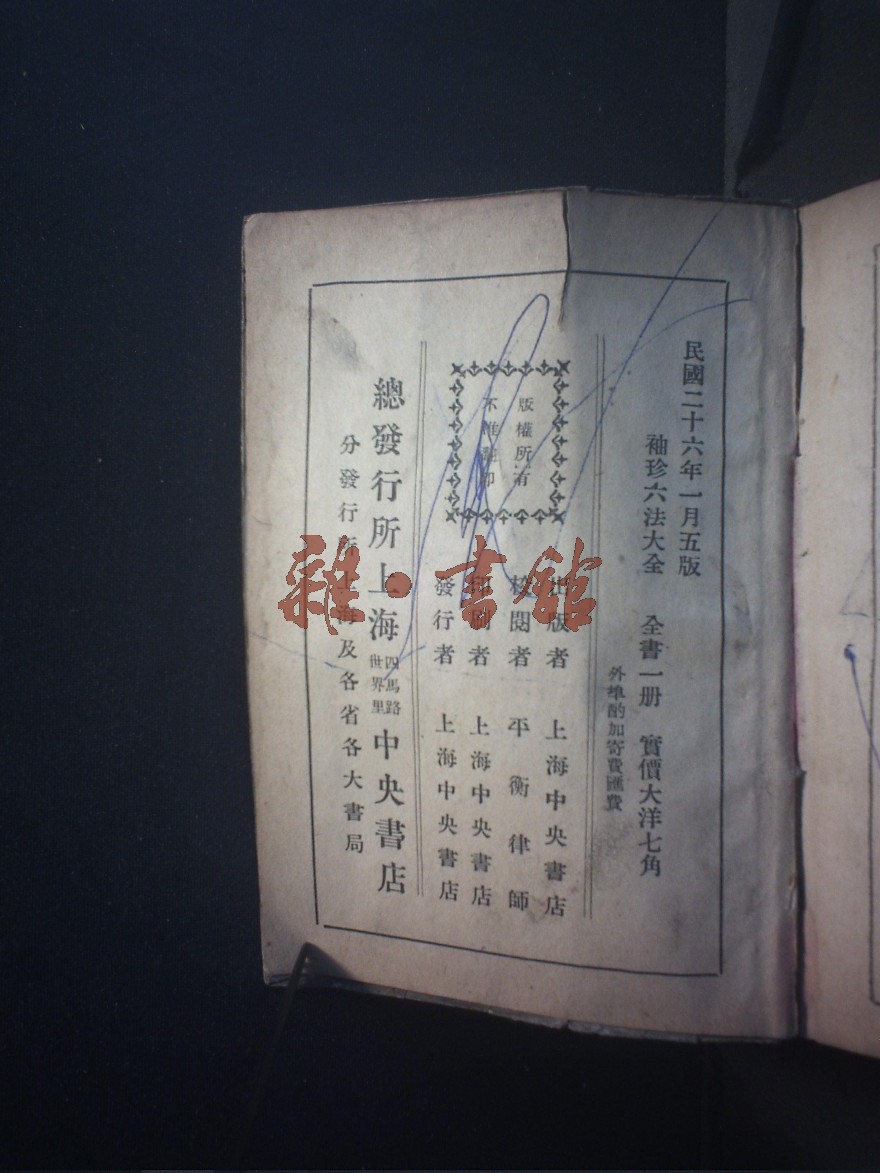 民國二十六年一月五版
袖珍六法大全　全書一册　實價大洋七角
外埠酌加寄費匯費
版權所有
不准翻印
出版者　上海中央書店
校閱者　平衡律師
印刷者　上海中央書店
發行者　上海中央書店
總發行所上海四馬路世界里中央書店
分發行所上海及各省各大書局
雜·書館